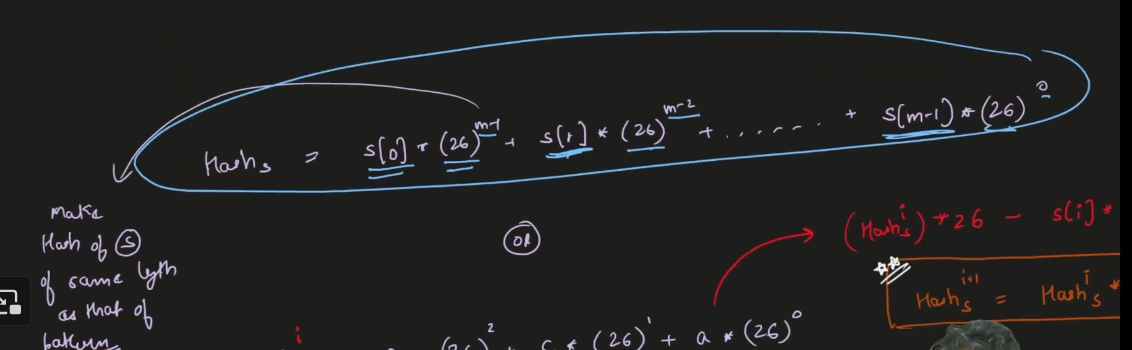 Hash_s = s[0] * (26)^m-1 + s[1] * (26)^m-2 + ....... + s[m-1] * (26)^0
Make
Hash of S
of same
as that of
OR
(Hash_s^i) * 26 - s[i] *
Hash_s^i+1 = Hash_s^i *
i
(26)^2 + * (26)^1 + a * (26)^0